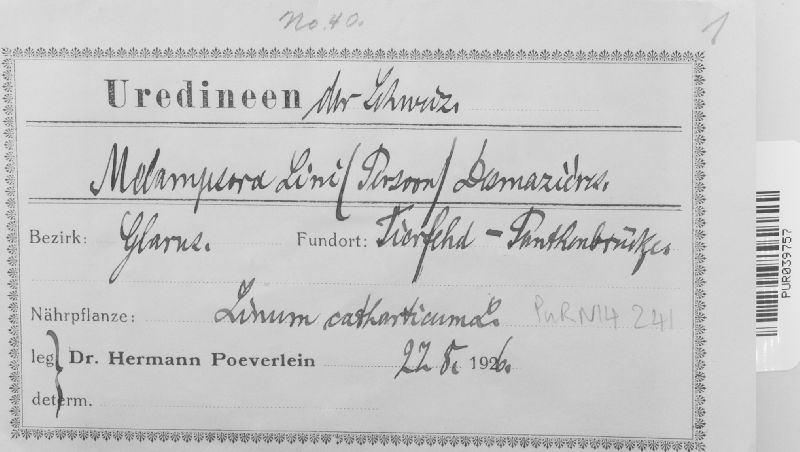 No. 40.
1
Uredineen der Schweiz.
Melampsora Lini (Persoon) Desmazières.
Bezirk: Glarus. Fundort: Tierfehd - Pantenbrücke.
Nährpflanze: Linum catharticum L. PUR N14 241
leg. Dr. Hermann Poeverlein 22. 8. 1926.
determ.
PUR039757